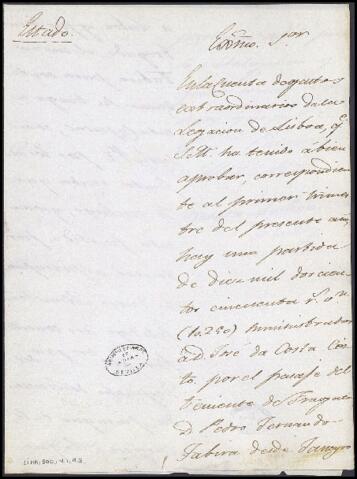 Estado.
Exmo. Sor.
En la cuenta de gastos
extraordinarios de la
Legacion de Lisboa, qe.
S. M. ha tenido á bien
aprobar, correspondien
te al primer trimes
tre del presente año,
hay una partida
de diez mil doscien
tos cincuenta rs. vn
(10.250) suministrados
a D. José da Costa Cou
to, por el pasaje del
teniente de Fragata
D. Pedro Fernando
Tabira desde
SEVILLA